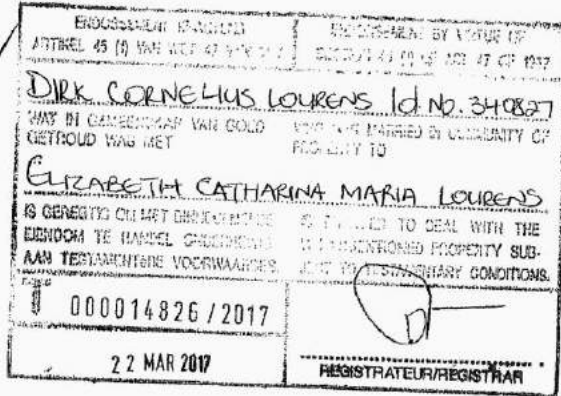 ENDOSSEMENT KRAGTENS
ENDORSEMENT BY VIRTUE OF
ARTIKEL 45 (1) VAN WET 47 VAN
SECTION 45 (1) OF ACT 47 OF 1937
DIRK CORNELIUS LOURENS Id No. 340827
WAT IN GEMEENSKAP VAN GOED
GETROUD WAS MET
WHO WAS MARRIED IN COMMUNITY OF
PROPERTY TO
ELIZABETH CATHARINA MARIA LOURENS
IS GEREGTIG OM MET
EIENDOM TE HANDEL ONDERHEWIG
AAN TESTAMENTÊRE VOORWAARDES
TO DEAL WITH THE
PROPERTY SUB-
JECT TO TESTAMENTARY CONDITIONS.
000014826/2017
22 MAR 2017
REGISTRATEUR/REGISTRAR